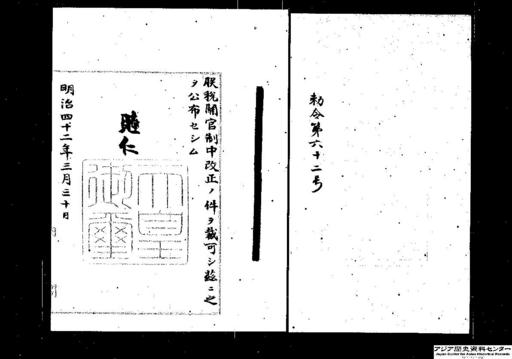 勅令第六十二号
朕税関官制中改正ノ件ヲ裁可シ茲ニ之
ヲ公布セシム
睦仁
天皇
御璽
明治四十二年三月三十日
アジア歴史資料センター
Japan Center for Asian Historical Records